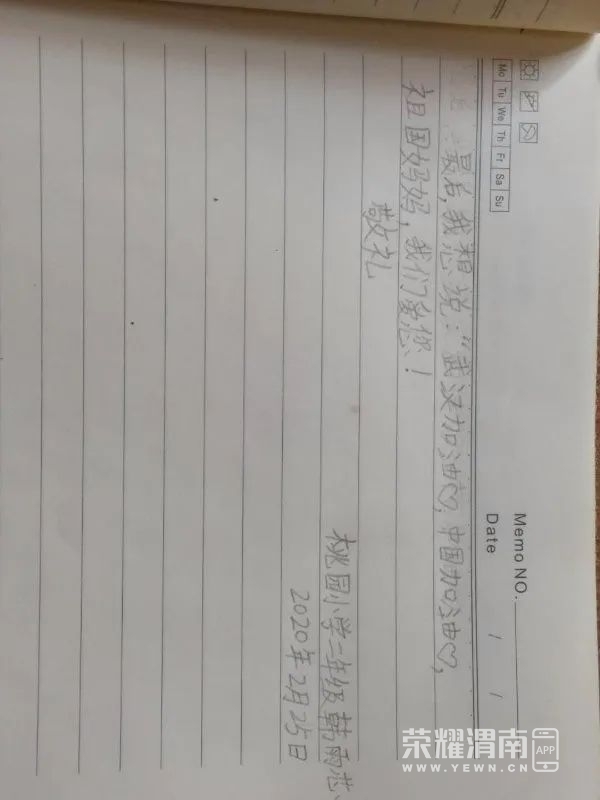 Memo NO.
Mo Tu We Th Fr Sa Su
Date / /
最后,我想说:“武汉加油♡,中国加油♡,
祖国妈妈,我们爱您!
敬礼
桃园小学二年级韩雨芯
2020年2月25日
荣耀渭南 APP
WWW.YEWN.CN